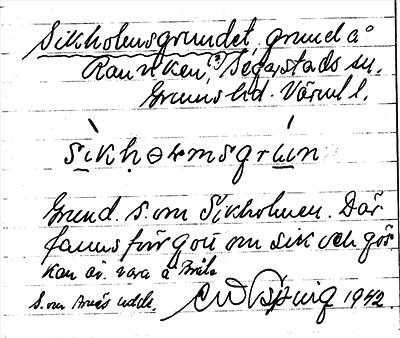 Sikholmsgrundet, grund å
Ranviken, (?) Segerstads sn.
Grums hd. Värml.
sikholmsgrùn
Grund s. om Sikholmen. Där
fanns förr gott om sik och gös
Kan äv. vara å
S. om Arnäs udde. 1942.